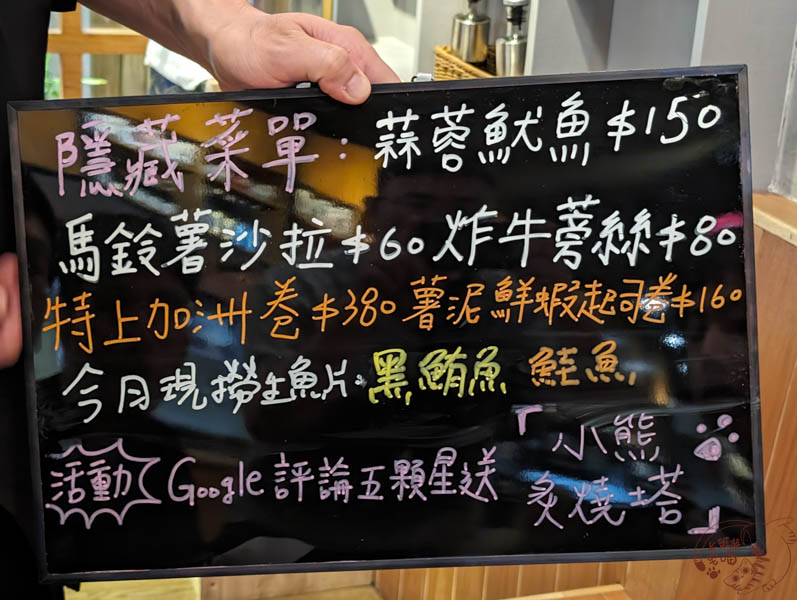 隱藏菜單：蒜蓉魷魚$150
馬鈴薯沙拉$60 炸牛蒡絲$80
特上加洲卷$380 薯泥鮮蝦起司卷$160
今日現撈生魚片：黑鮪魚 鮭魚
活動 Google評論五顆星送
「小熊
炙燒塔」